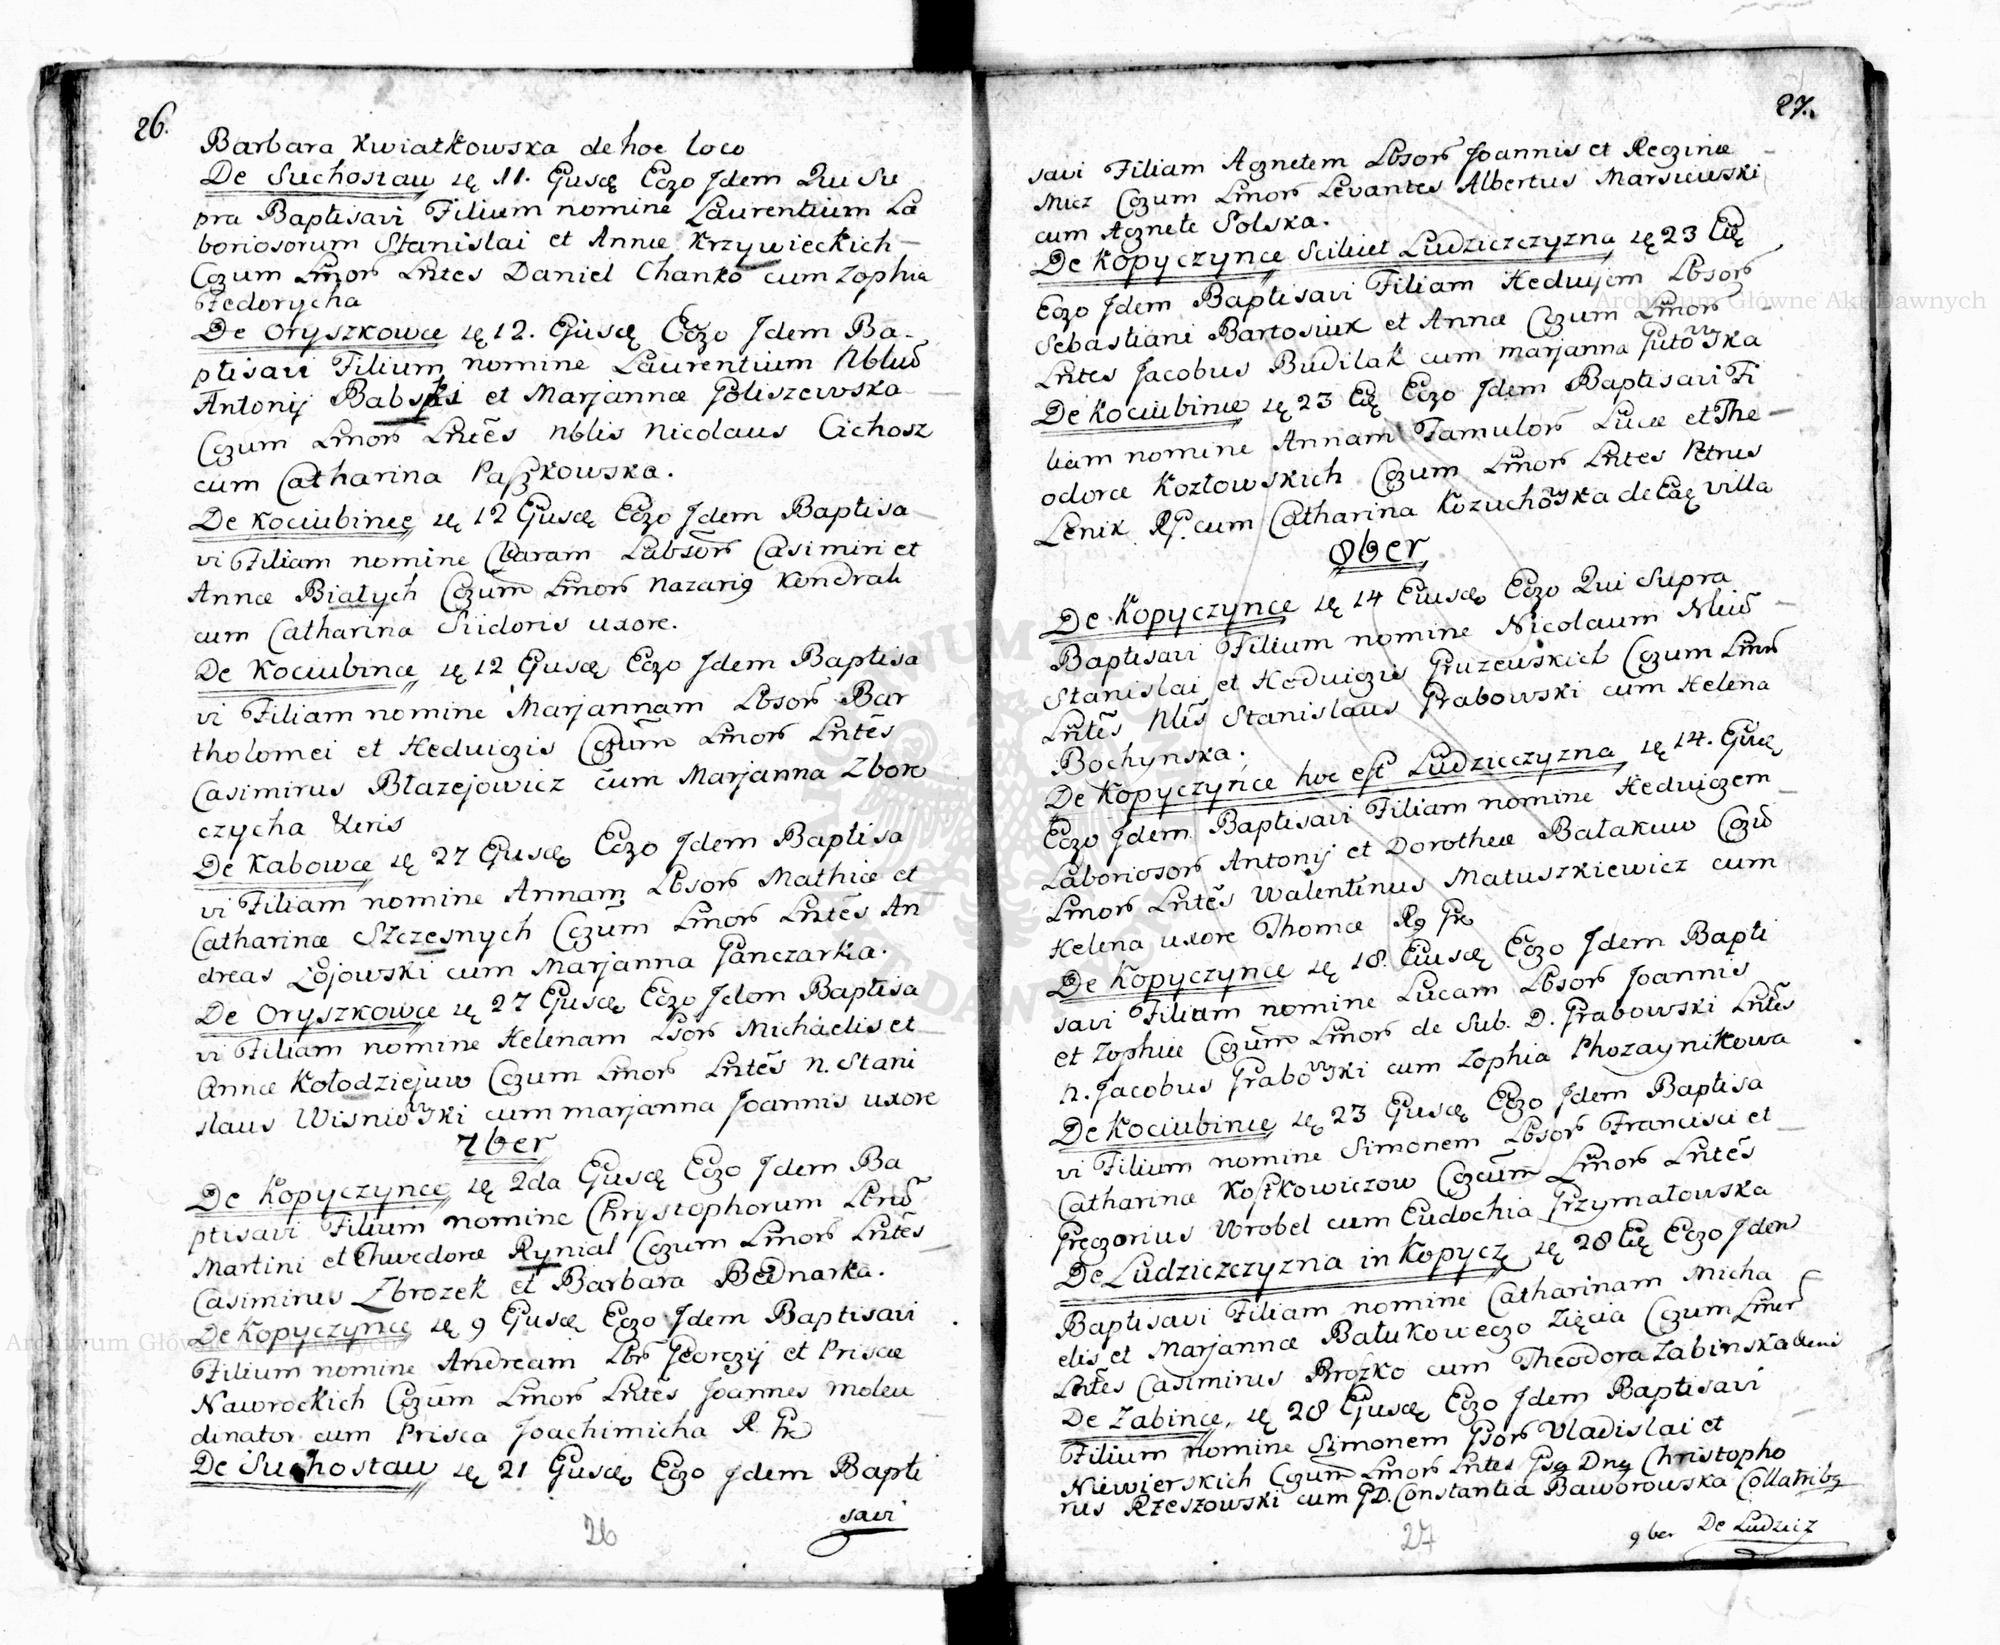 26.
Barbara Kwiatkowska de hoc loco
De Suchostaw, 11. Ejusdę Eczo Jdem Qui Su
pra Baptisavi Filium nomine Laurentium La
boriosorum Stanislai et Annæ Krzywieckich
Czum Lmor Lntes Daniel Chanko cum Zophia
Fedorycha
De Oryszkowce 12. Eczo Jdem Ba-
ptisavi Filium nomine Laurentium
Antonij Babski et Marjannæ Goliszewska
Czum Lmor Lntes Nblis Nicolaus Cichosz
cum Catharina Paszkowska.
De Kociubince 12 Eczo Jdem Baptisa
vi Filiam nomine Claram Labsor Casimiri et
Annæ Białych Czum Lmor Nazarig Kondrah
cum Catharina Sidoris uxore.
De Kociubince 12 Eczo Jdem Baptisa
vi Filiam nomine Marjannam Lbsor Bar
tholomei et Hedvigis Czum Lmor Lntes
Casimirus Błazejowicz cum Marjanna Zboro
czycha
De Kabowce 27 Eczo Jdem Baptisa
vi Filiam nomine Annam Lbsor Mathiæ et
Catharinæ Szczesnych Czum Lmor Lntes An
dreas Łojowski cum Marjanna Ganczarka.
De Oryszkowce 27 Eczo Jdem Baptisa
vi Filiam nomine Helenam Lsor Michaelis et
Annæ Kołodziejuw Czum Lmor Lntes N. Stani
slaus Wisniowski cum Marjanna Joannis uxore
7ber
De Kopyczynce 2da Eczo Jdem Ba
ptisavi Filium nomine Chrystophorum
Martini et Chwedoræ Rynial Czum Lmor Lntes
Casimirus Zbrozek et Barbara Bednarka.
De Kopyczynce 9 Eczo Jdem Baptisavi
Filium nomine Andream Georgij et Priscæ
Nawrockich Czum Lmor Lntes Joannes Moleu
dinator cum Prisca Joachimicha R.
De Suchostaw 21 Eczo Jdem Bapti
savi
26
27.
savi Filiam Agnetem Lbsor Joannis et Reginæ
Micz Czum Lmor Levantes Albertus Marsiewski
cum Agnete Solska.
De Kopyczynce Scilicet Ludziczczyzna 23
Eczo Jdem Baptisavi Filiam Hedvigem Lbsor
Sebastiani Bartosiuk et Annæ Czum Lmor
Lntes Jacobus Budilak cum Marjanna Gutowska
De Kociubince 23 Eczo Jdem Baptisavi Fi
liam nomine Annam Famulor Lucæ et The
odoræ Kozłowskich Czum Lmor Lntes Petrus
Lenik cum Catharina Kozuchowska de Villa
8ber
De Kopyczynce 14 Eczo Qui Supra
Baptisavi Filium nomine Nicolaum
Stanislai et Hedvigis Gruzewskich Czum Lmor
Lntes Nlis Stanislaus Grabowski cum Helena
Bochynska.
De Kopyczynce hoc est Ludziczczyzna 14.
Eczo Jdem Baptisavi Filiam nomine Hedvigem
Laboriosor Antonij et Dorotheæ Bałakuw
Lmor Lntes Walentinus Matuszkiewicz cum
Helena uxore Thomæ
De Kopyczynce 18. Eczo Jdem Bapti
savi Filium nomine Lucam Lbsor Joannis
et Zophiæ Czum Lmor de Sub. D. Grabowski Lntes
N. Jacobus Grabowski cum Zophia Phozaynikowa
De Kociubince 23 Eczo Jdem Baptisa
vi Filium nomine Simonem Lbsor Francisci et
Catharinæ Kostkowiczow Czum Lmor Lntes
Gregorius Wrobel cum Eudochia Grzymałowska
De Ludziczczyzna in Kopycz 28 Eczo Jdem
Baptisavi Filiam nomine Catharinam Micha
elis et Marjannæ Bałukowego Zięcia Czum Lmor
Lntes Casimirus Prozko cum Theodora Zabinska
De Zabince 28 Eczo Jdem Baptisavi
Filium nomine Simonem Gsor Vladislai et
Niewierskich Czum Lmor Lntes Christopho
rus Rzeszowski cum GD. Constantia Baworowska
9ber De Ludzicz
27
Archiwum Główne Akt Dawnych
Archiwum Główne Akt Dawnych